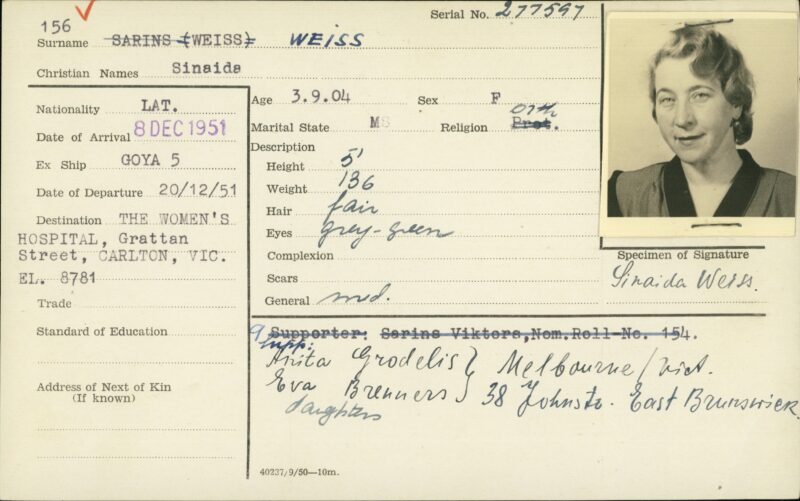 156
Serial No. 277597
Surname SARINS (WEISS) WEISS
Christian Names Sinaida
Nationality LAT.
Date of Arrival 8 DEC 1951
Ex Ship GOYA 5
Date of Departure 20/12/51
Destination THE WOMEN'S
HOSPITAL, Grattan
Street, CARLTON, VIC.
EL. 8781
Trade
Standard of Education
Address of Next of Kin
(If known)
Age 3.9.04 Sex F
Orth
Marital State M Religion Prot.
Description
Height 5'
Weight 136
Hair fair
Eyes grey-green
Complexion
Scars
General med.
Specimen of Signature
Sinaida Weiss.
Supporter: Sarins Viktors, Nom.Roll-No. 154.
Supp:
Anita Grodelis } Melbourne / Vict.
Eva Brenners } 38 Johnsto. East Brunswick
daughters
40237/9/50—10m.